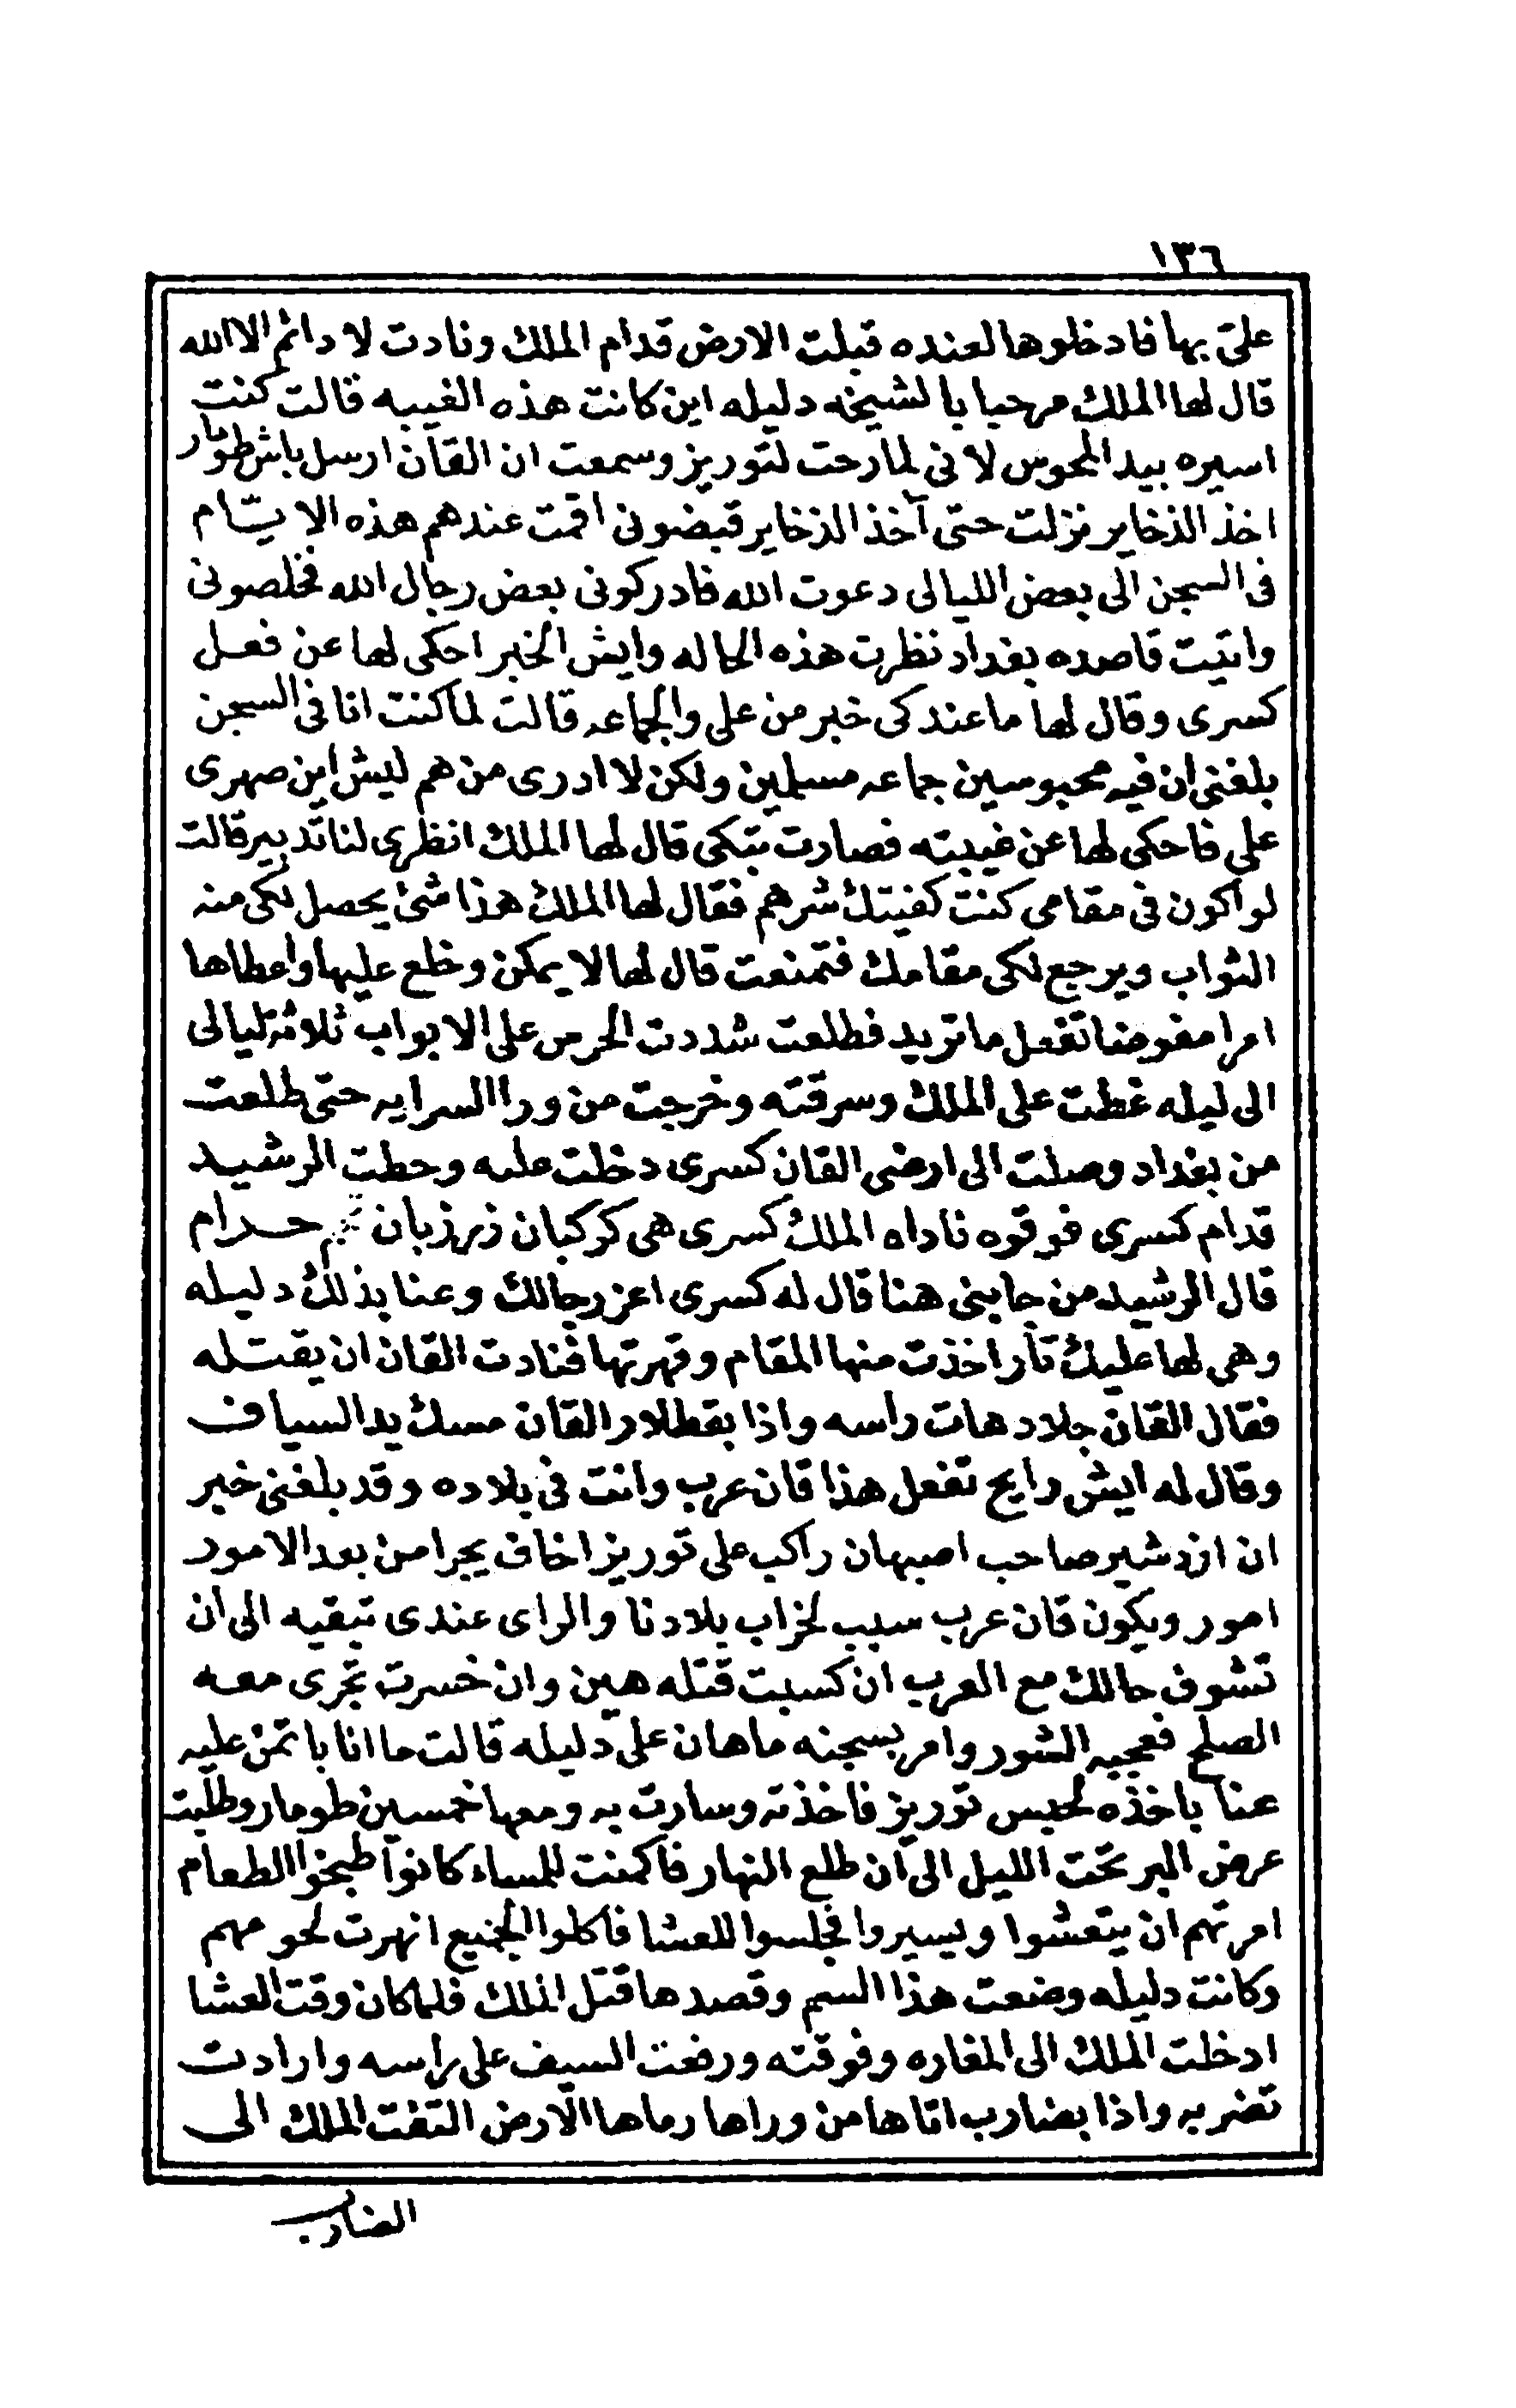 ١٣٦
عليّ بها فادخلوها لعنده قبلت الارض قدام الملك ونادت لا دائم الا الله
قال لها الملك مرحبا بالشيخه دليله اين كانت هذه الغيبه قالت كنت
اسيره بيد المجوس لاني لما رحت لتوريز وسمعت ان القان ارسل باش طومار
اخذ الذخاير نزلت حتى آخذ الذخاير قبضوني اقمت عندهم هذه الايّام
في السجن الى بعض الليالى دعوت الله فادركوني بعض رجال الله فخلصوني
واتيت قاصده بغداد نظرت هذه الحاله وايش الخبر احكى لها عن فعل
كسرى وقال لها ما عندكى خبر من على والجماعه قالت لما كنت انا في السجن
بلغني ان فيه محبوسين جماعه مسلمين ولكن لا ادرى من هم ليش اين صهرى
على فاحكى لها عن غيبته فصارت تبكى قال لها الملك انظرى لنا تدبير قالت
لو اكون في مقامى كنت كفيتك شرهم فقال لها الملك هذا شئ يحصل لكى منه
الثواب ويرجع لكى مقامك فتمنعت قال لها لا يمكن وخلع عليها واعطاها
امرا مفوضا تفعل ما تريد فطلعت شددت الحرس على الابواب ثلاثة ليالى
الى ليله غطت على الملك وسرقته وخرجت من ورا السرايه حتى طلعت
من بغداد وصلت الى ارضى القان كسرى دخلت عليه وحطت الرشيد
قدام كسرى فوقوه ناداه الملك كسرى هى كركبان زبرزبان حرام
قال الرشيد من جابنى هنا قال له كسرى اعز رجالك وعنا بذلك دليله
وهى لها عليك تار اخذت منها المقام وقهرتها فنادت القان ان يقتله
فقال القان جلاد هات راسه واذا بقطلار القان مسك يد السياف
وقال له ايش رايح تفعل هذا قان عرب وانت في بلاده وقد بلغنى خبر
ان ازدشير صاحب اصبهان راكب على توريز اخاف يجرا من بعد الامور
امور ويكون قان عرب سبب لخراب بلادنا والراى عندى تبقيه الى ان
تشوف حالك مع العرب ان كسبت قتله هين وان خسرت تجرى معه
الصلح فعجبه الشور وامر بسجنه ما هان على دليله قالت ما انا باتمن عليه
عنا باخذه لحبس توريز فاخذته وسارت به ومعها خمسين طومار وطلبت
عرض البر تحت الليل الى ان طلع النهار فاكمنت للمساء كانوا طبخوا الطعام
امرتهم ان يتعشوا ويسيروا فجلسوا للعشا فاكلوا الجميع انهرت لحومهم
وكانت دليله وضعت هذا السم وقصدها قتل الملك فلما كان وقت العشا
ادخلت الملك الى المغاره وفوقته ورفعت السيف على راسه وارادت
تضربه واذا بضارب اتاها من وراها رماها الارض التفت الملك الى
الضارب